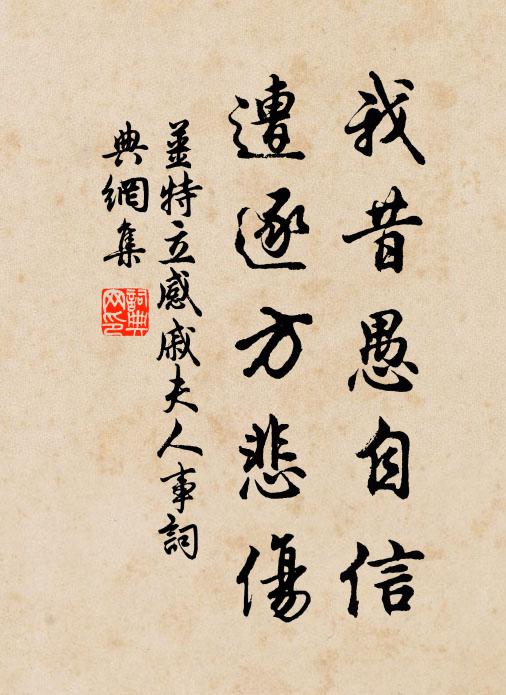 我昔愚自信
遭逐方悲傷
姜特立感戚夫人事詞
典網集
詞典
网印